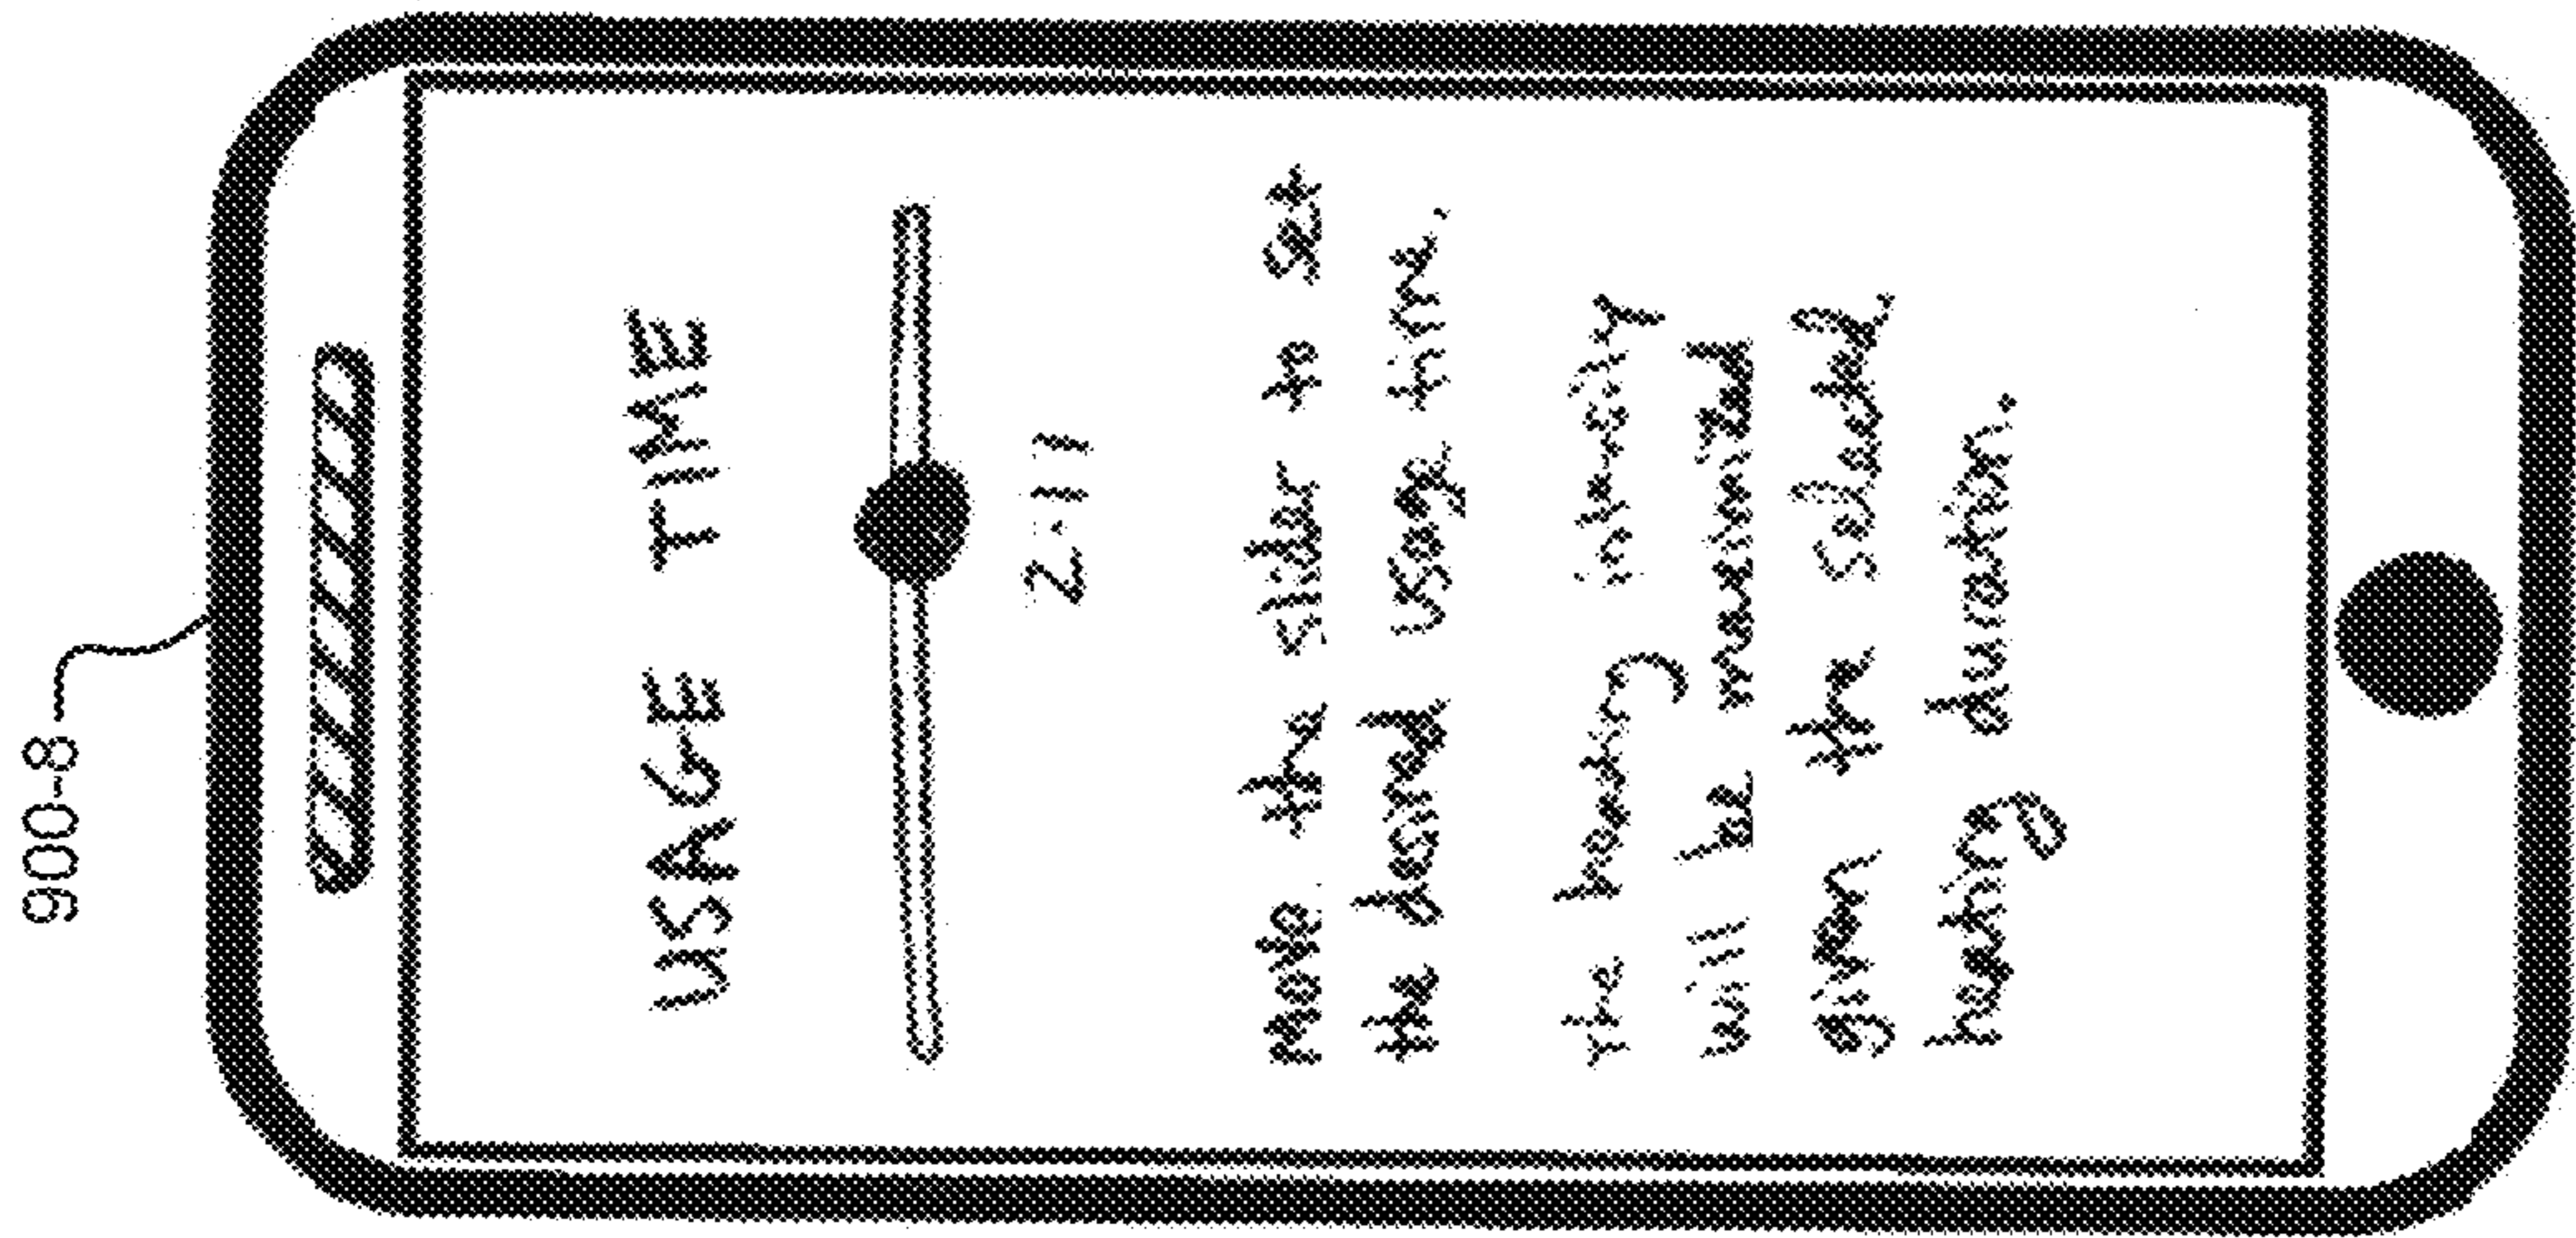 900-8
USAGE TIME
2:11
Move the slider to set
the desired usage time.
The heating intensity
will be maximized
given the selected
heating duration.